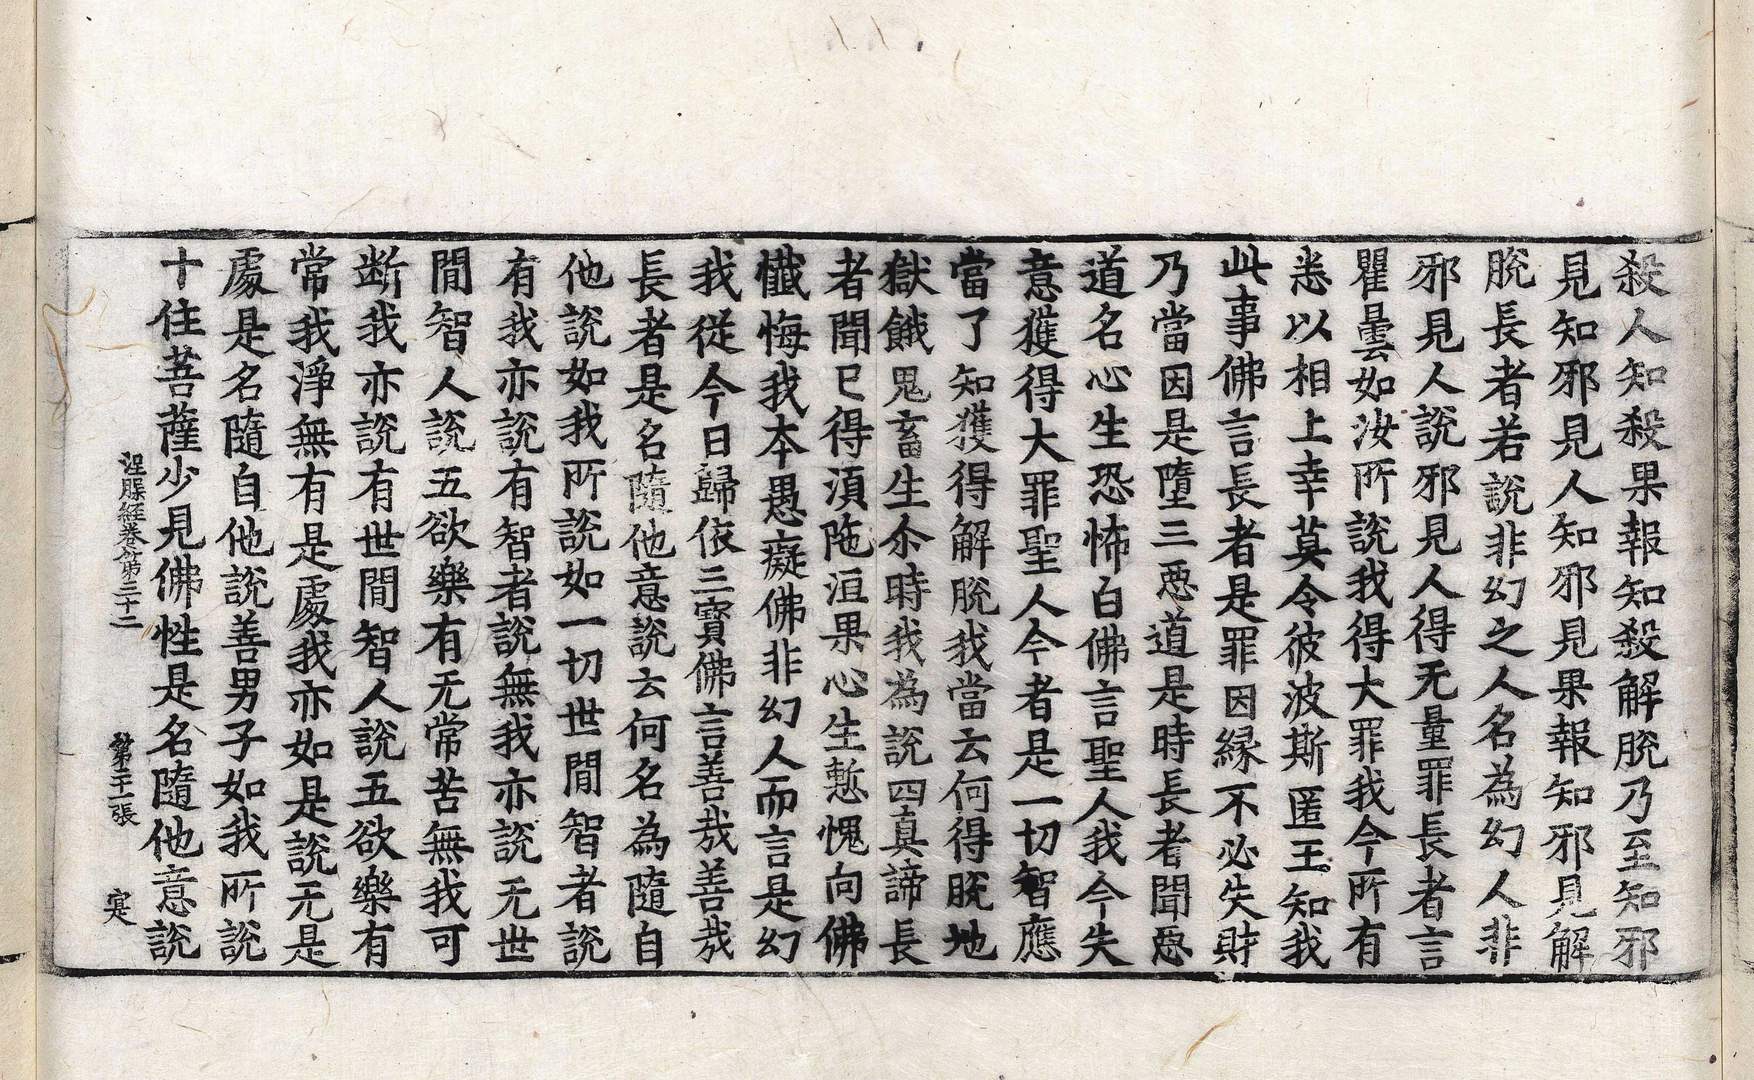 殺人知殺果報知殺解脫乃至知邪
見知邪見人知邪見果報知邪見解
脫長者若說非幻之人名為幻人非
邪見人說邪見人得无量罪長者言
瞿曇如汝所說我得大罪我今所有
悉以相上幸莫令彼波斯匿王知我
此事佛言長者是罪因緣不必失財
乃當因是墮三惡道是時長者聞惡
道名心生恐怖白佛言聖人我今失
意獲得大罪聖人今者是一切智應
當了知獲得解脫我當云何得脫地
獄餓鬼畜生尒時我為說四真諦長
者聞已得須陁洹果心生慙愧向佛
懺悔我本愚癡佛非幻人而言是幻
我從今日歸依三寶佛言善哉善哉
長者是名隨他意說云何名為隨自
他說如我所說如一切世間智者說
有我亦說有智者說無我亦說无世
間智人說五欲樂有无常苦無我可
斷我亦說有世間智人說五欲樂有
常我淨無有是處我亦如是說无是
處是名隨自他說善男子如我所說
十住菩薩少見佛性是名隨他意說
涅槃經卷第三十二 第二十一張 寔